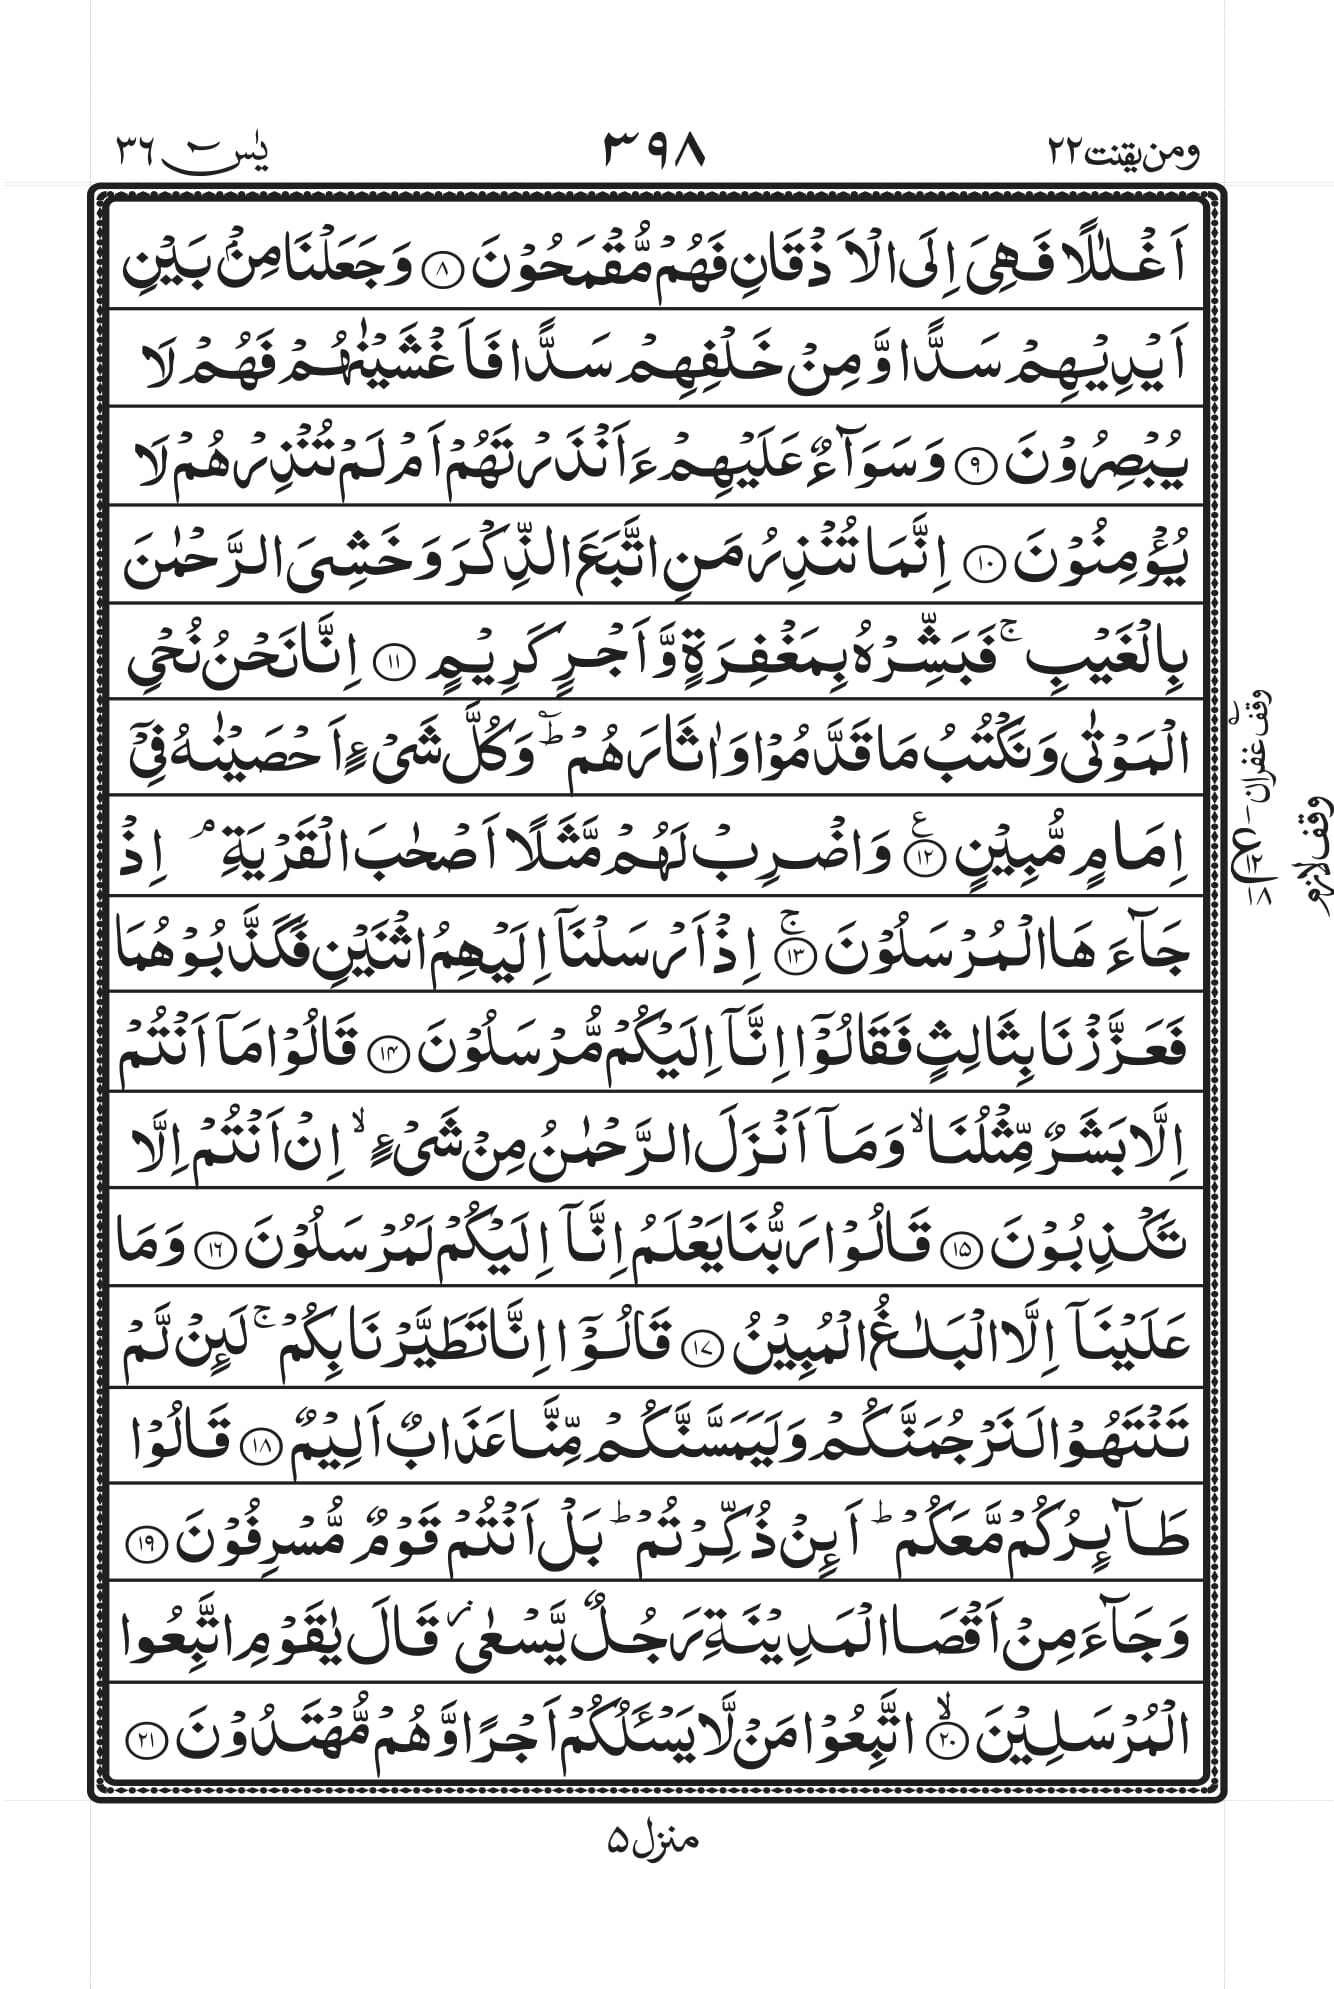 ومن يقنت ٢٢
٣٩٨
يٰسٓ ٣٦
اَغْلٰلًا فَهِيَ اِلَى الْاَذْقَانِ فَهُمْ مُّقْمَحُوْنَ ٨ وَجَعَلْنَا مِنْۢ بَيْنِ
اَيْدِيْهِمْ سَدًّا وَّمِنْ خَلْفِهِمْ سَدًّا فَاَغْشَيْنٰهُمْ فَهُمْ لَا
يُبْصِرُوْنَ ٩ وَسَوَآءٌ عَلَيْهِمْ ءَاَنْذَرْتَهُمْ اَمْ لَمْ تُنْذِرْهُمْ لَا
يُؤْمِنُوْنَ ١٠ اِنَّمَا تُنْذِرُ مَنِ اتَّبَعَ الذِّكْرَ وَخَشِيَ الرَّحْمٰنَ
بِالْغَيْبِ ۚ فَبَشِّرْهُ بِمَغْفِرَةٍ وَّاَجْرٍ كَرِيْمٍ ١١ اِنَّا نَحْنُ نُحْيِ
الْمَوْتٰى وَنَكْتُبُ مَا قَدَّمُوْا وَاٰثَارَهُمْ ؕ وَكُلَّ شَيْءٍ اَحْصَيْنٰهُ فِيْٓ
اِمَامٍ مُّبِيْنٍ ١٢ ع وَاضْرِبْ لَهُمْ مَّثَلًا اَصْحٰبَ الْقَرْيَةِ ۘ اِذْ
جَآءَهَا الْمُرْسَلُوْنَ ١٣ ۚ اِذْ اَرْسَلْنَآ اِلَيْهِمُ اثْنَيْنِ فَكَذَّبُوْهُمَا
فَعَزَّزْنَا بِثَالِثٍ فَقَالُوْٓا اِنَّآ اِلَيْكُمْ مُّرْسَلُوْنَ ١٤ قَالُوْا مَآ اَنْتُمْ
اِلَّا بَشَرٌ مِّثْلُنَا ۙ وَمَآ اَنْزَلَ الرَّحْمٰنُ مِنْ شَيْءٍ ۙ اِنْ اَنْتُمْ اِلَّا
تَكْذِبُوْنَ ١٥ قَالُوْا رَبُّنَا يَعْلَمُ اِنَّآ اِلَيْكُمْ لَمُرْسَلُوْنَ ١٦ وَمَا
عَلَيْنَآ اِلَّا الْبَلٰغُ الْمُبِيْنُ ١٧ قَالُوْٓا اِنَّا تَطَيَّرْنَا بِكُمْ ۚ لَئِنْ لَّمْ
تَنْتَهُوْا لَنَرْجُمَنَّكُمْ وَلَيَمَسَّنَّكُمْ مِّنَّا عَذَابٌ اَلِيْمٌ ١٨ قَالُوْا
طَآئِرُكُمْ مَّعَكُمْ ؕ اَئِنْ ذُكِّرْتُمْ ؕ بَلْ اَنْتُمْ قَوْمٌ مُّسْرِفُوْنَ ١٩
وَجَآءَ مِنْ اَقْصَا الْمَدِيْنَةِ رَجُلٌ يَّسْعٰى ز قَالَ يٰقَوْمِ اتَّبِعُوا
الْمُرْسَلِيْنَ ٢٠ ۙ اتَّبِعُوْا مَنْ لَّا يَسْـَٔلُكُمْ اَجْرًا وَّهُمْ مُّهْتَدُوْنَ ٢١
وقف غفران
وقف لازم
ع
١٢
منزل ٥